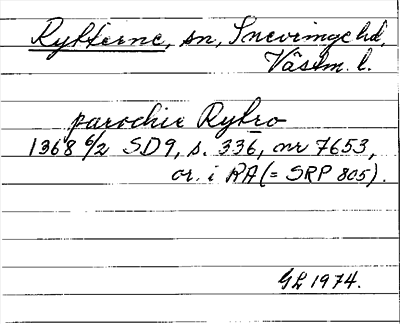 Rytterne, sn, Snevringe hd,
Västm. l.
parochie Rytro
1368 6/2 SD9, s. 336, nr 7653,
or. i RA (= SRP 805).
GL 1974.